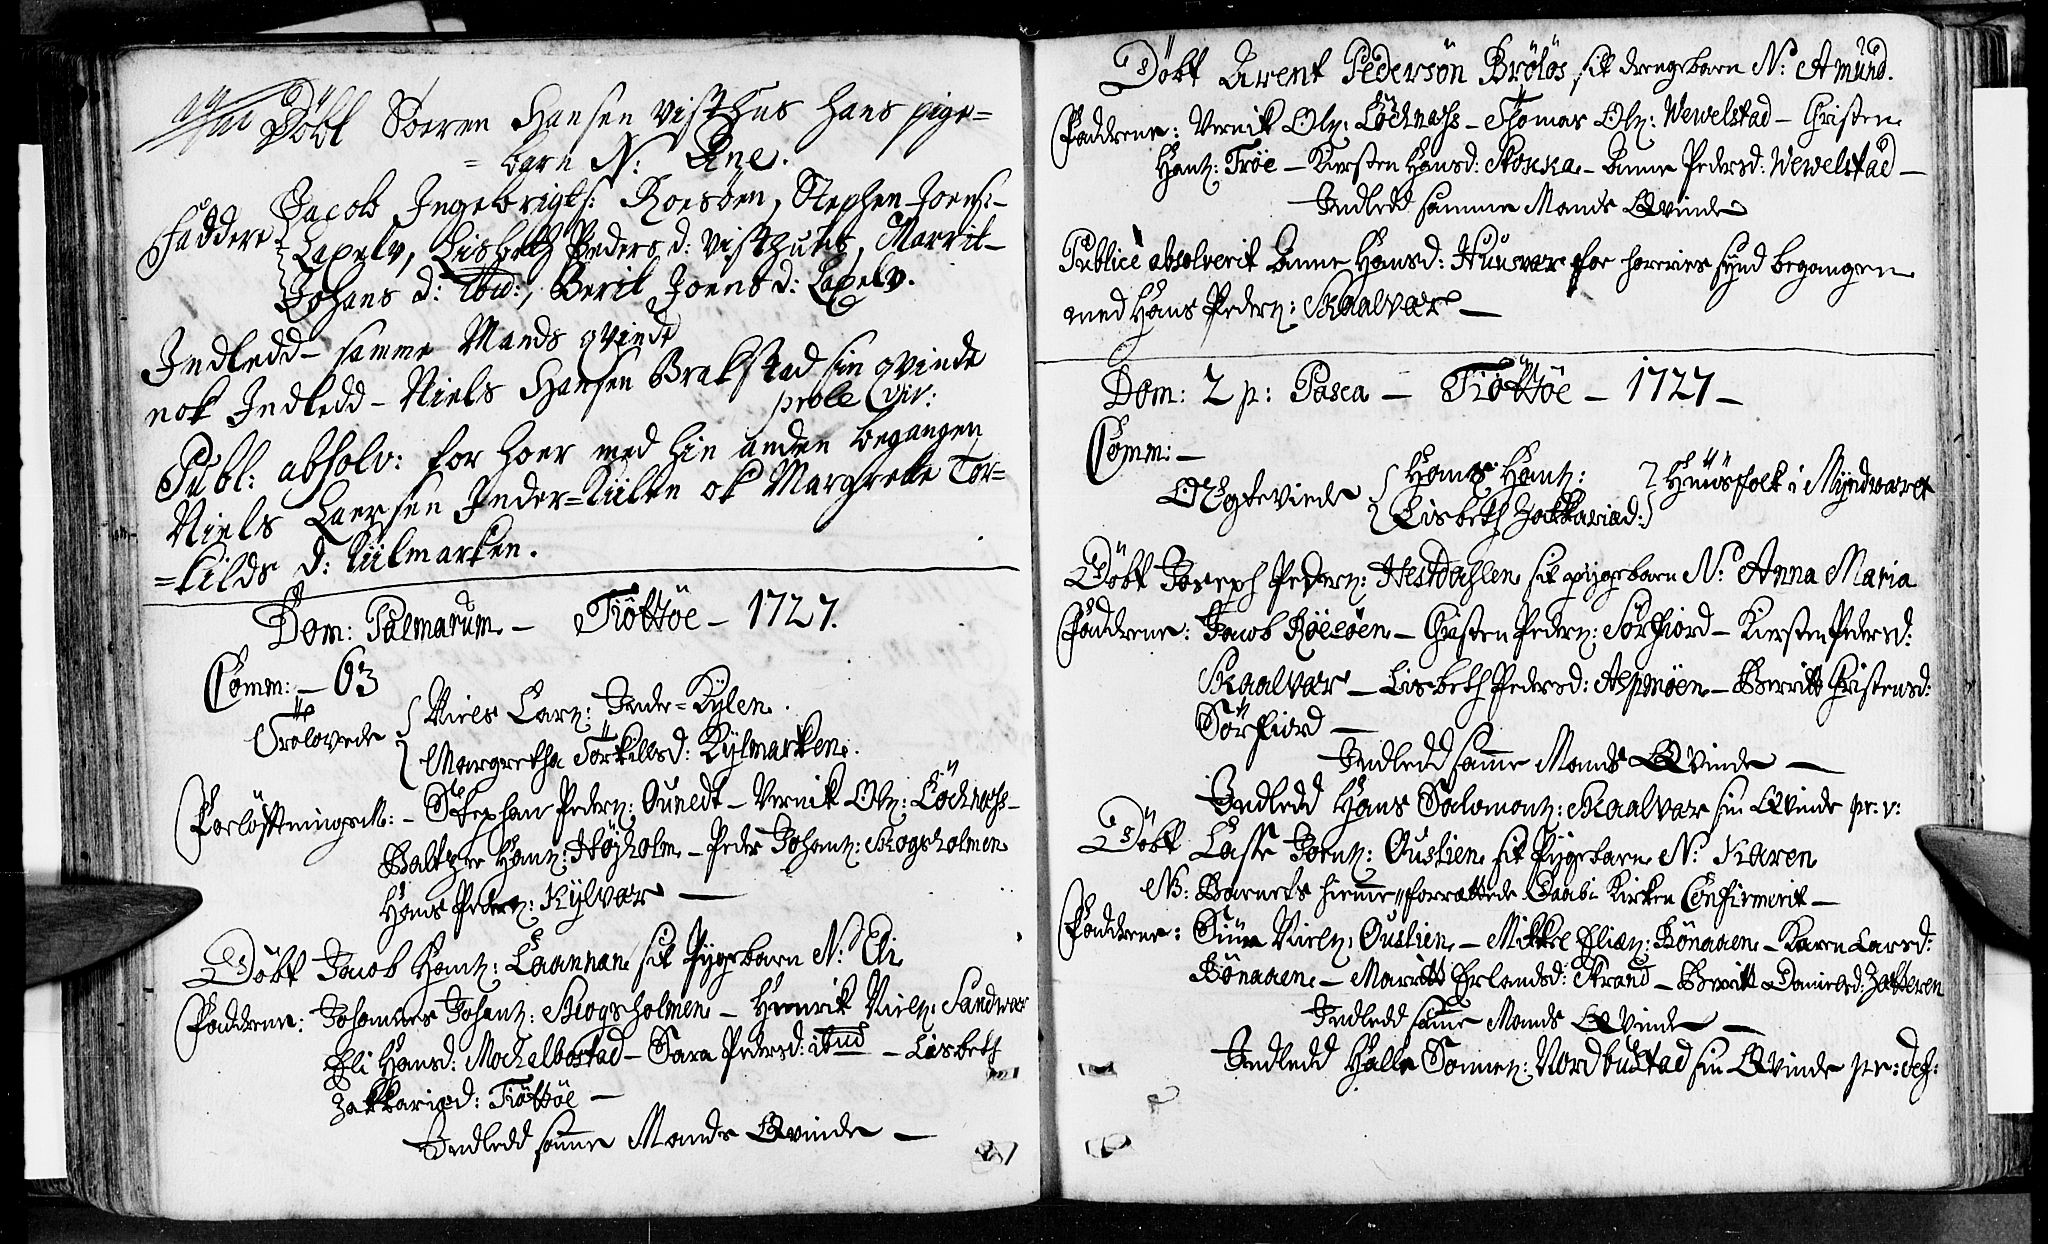 Döbt Soeren Hansen Visthus hans pige=
=barn N: Ane.
Faddere Jacob Ingebrigts: Roesöen, Stephen Joens:
Laxelv, Lisbeth Peders d: Visthus, Marrit
Johans d: Ibid:, Berit Joens d: Laxelv.
Indledd samme Mands qvinde
nok Indledd - Niels Hansen Brakstad sin qvinde
prole viv:
Publ: absolv: for hoer med hin anden begangen
Niels Laersen Inder=Kiilen ok Margrete Tor=
=kilds d: Kiilmarken.
Dom: Palmarum - Tiöttöe - 1727.
Comm: - 63
Trolovede Niels Larz: Inder=Kylen.
Margretha Torkillsd: Kylmarken.
Forlöftningsm: - Stephan Peders: Ounedt - Vernik Olz: Löchnæss -
Baltzer Hanz: Höyholm - Peder Johanz: Skogsholmen
Hans Peders: Kylvær -
Döbt Jacob Hanz: Laannan sit Pygebarn N: Eli
Faddrene: Johannes Johanz: Skogsholmen - Henrik Nielz: Sandvær
Eli Hansd: Mochelbostad - Sara Pedersd: ibid - Lisbeth
Zakkariæd: Tiöttöe -
Indledd samme Mands Qvinde -
Döbt Arent Pedersön Brölös sit drengebarn N: Amund.
Faddrene: Vernik Olz: Löchnæss - Thomas Olz: Wewelstad - Christen
Hanz: Tröe - Kirsten Hansd: Stokka - Anne Pedersd: Wewelstad -
Indledd samme Mands Qvinde
Publicè absolverit Anne Hansd: Huusvær for horeries synd begangen
med Hans Peders: Skaalvær -
Dom: 2 p: Pasca - Tiöttöe - 1727 -
Comm: -
Egteviede Hans Hanz: Huusfolk i Myndværet
Lisbeth Zakkariæd:
Döbt Joseph Peders: Hestdahlen sit pygebarn N: Anna Maria
Faddrene: Jacob Röesöen - Christen Peders: Sörfiord - Kirsten Pedersd:
Skaalvær - Lisbeth Pedersd: Aspmöen - Berritt Christensd:
Sörfiord -
Indledd samme Mands Qvinde -
Indledd Hans Salomonz: Skaalvær sin Qvinde pr: v:
Döbt Lasse Joenz: Oustien sit Pygebarn N: Karen
NB: Barnets hiemme forrættede Daab i Kirken Confirmerit -
Faddrene: Nielz: Oustien - Mikkel Eliæz: Bönaaen - Karen Larsd:
Bönaaen - Marritt Erlandsd: Strand - Berritt Danielsd: Zatteren
Indledd samme Mands Qvinde -
Indledd Halle Sönnez: Nordbustad sin Qvinde pr: def: